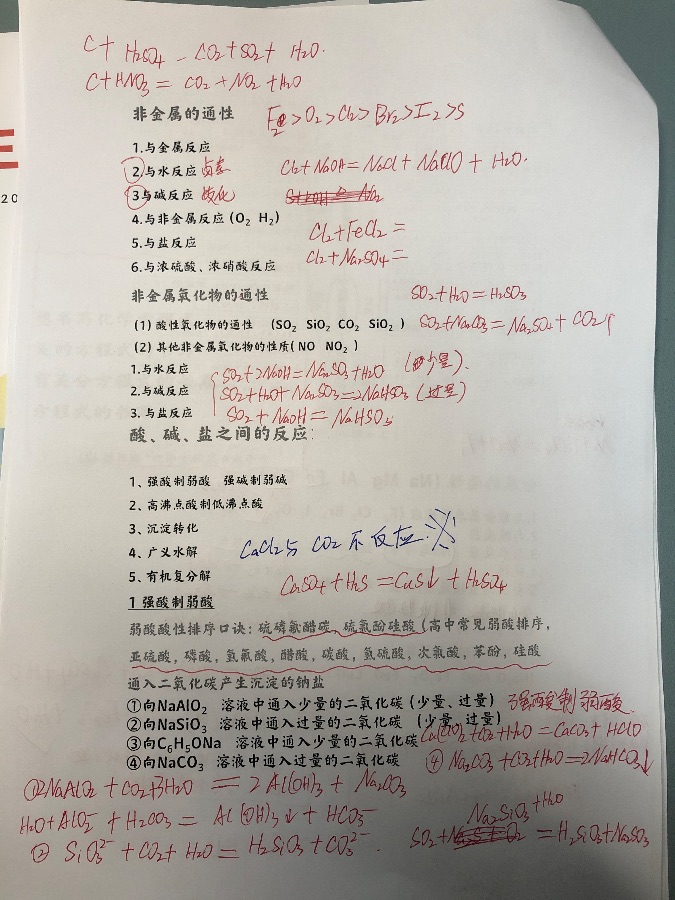 C + H2SO4 — CO2+SO2+ H2O.
C+HNO3 = CO2+NO2+H2O
非金属的通性 F2>O2>Cl2>Br2>I2>S
1.与金属反应
2.与水反应 卤素 Cl2+NaOH=NaCl+NaClO+H2O.
3与碱反应 歧化
4.与非金属反应(O2 H2)
Cl2+FeCl2=
5.与盐反应
Cl2+Na2SO4=
6.与浓硫酸、浓硝酸反应
非金属氧化物的通性 SO2+H2O=H2SO3
(1) 酸性氧化物的通性 (SO2 SiO2 CO2 SiO2 ) SO2+Na2CO3=Na2SO3+CO2↑
(2) 其他非金属氧化物的性质(NO NO2 )
1.与水反应 SO2+2NaOH=Na2SO3+H2O (少量).
2.与碱反应 SO2+H2O+Na2SO3=2NaHSO3 (过量)
3. 与盐反应 SO2+NaOH=NaHSO3
酸、碱、盐之间的反应:
1、强酸制弱酸 强碱制弱碱
2、高沸点酸制低沸点酸
3、沉淀转化
4、广义水解 CaCl2与CO2不反应
5、有机复分解 CuSO4+H2S=CuS↓+H2SO4
1 强酸制弱酸
弱酸酸性排序口诀:硫磷氟醋碳,硫氯酚硅酸(高中常见弱酸排序,
亚硫酸,磷酸,氢氟酸,醋酸,碳酸,氢硫酸,次氯酸,苯酚,硅酸
通入二氧化碳产生沉淀的钠盐
①向NaAlO2 溶液中通入少量的二氧化碳 (少量、过量) 强酸制弱酸
②向NaSiO3 溶液中通入过量的二氧化碳 (少量、过量)
③向C6H5ONa 溶液中通入少量的二氧化碳 Ca(ClO)2+CO2+H2O=CaCO3+HClO
④向NaCO3 溶液中通入过量的二氧化碳 ④ Na2CO3+CO2+H2O=2NaHCO3↓
①2NaAlO2+CO2+3H2O=2Al(OH)3+Na2CO3
Na2SiO3+H2O
H2O+AlO2-+H2CO3=Al(OH)3↓+HCO3-
SO2+ =H2SiO3+Na2SO3
② SiO3 2-+CO2+H2O=H2SiO3+CO3 2-.